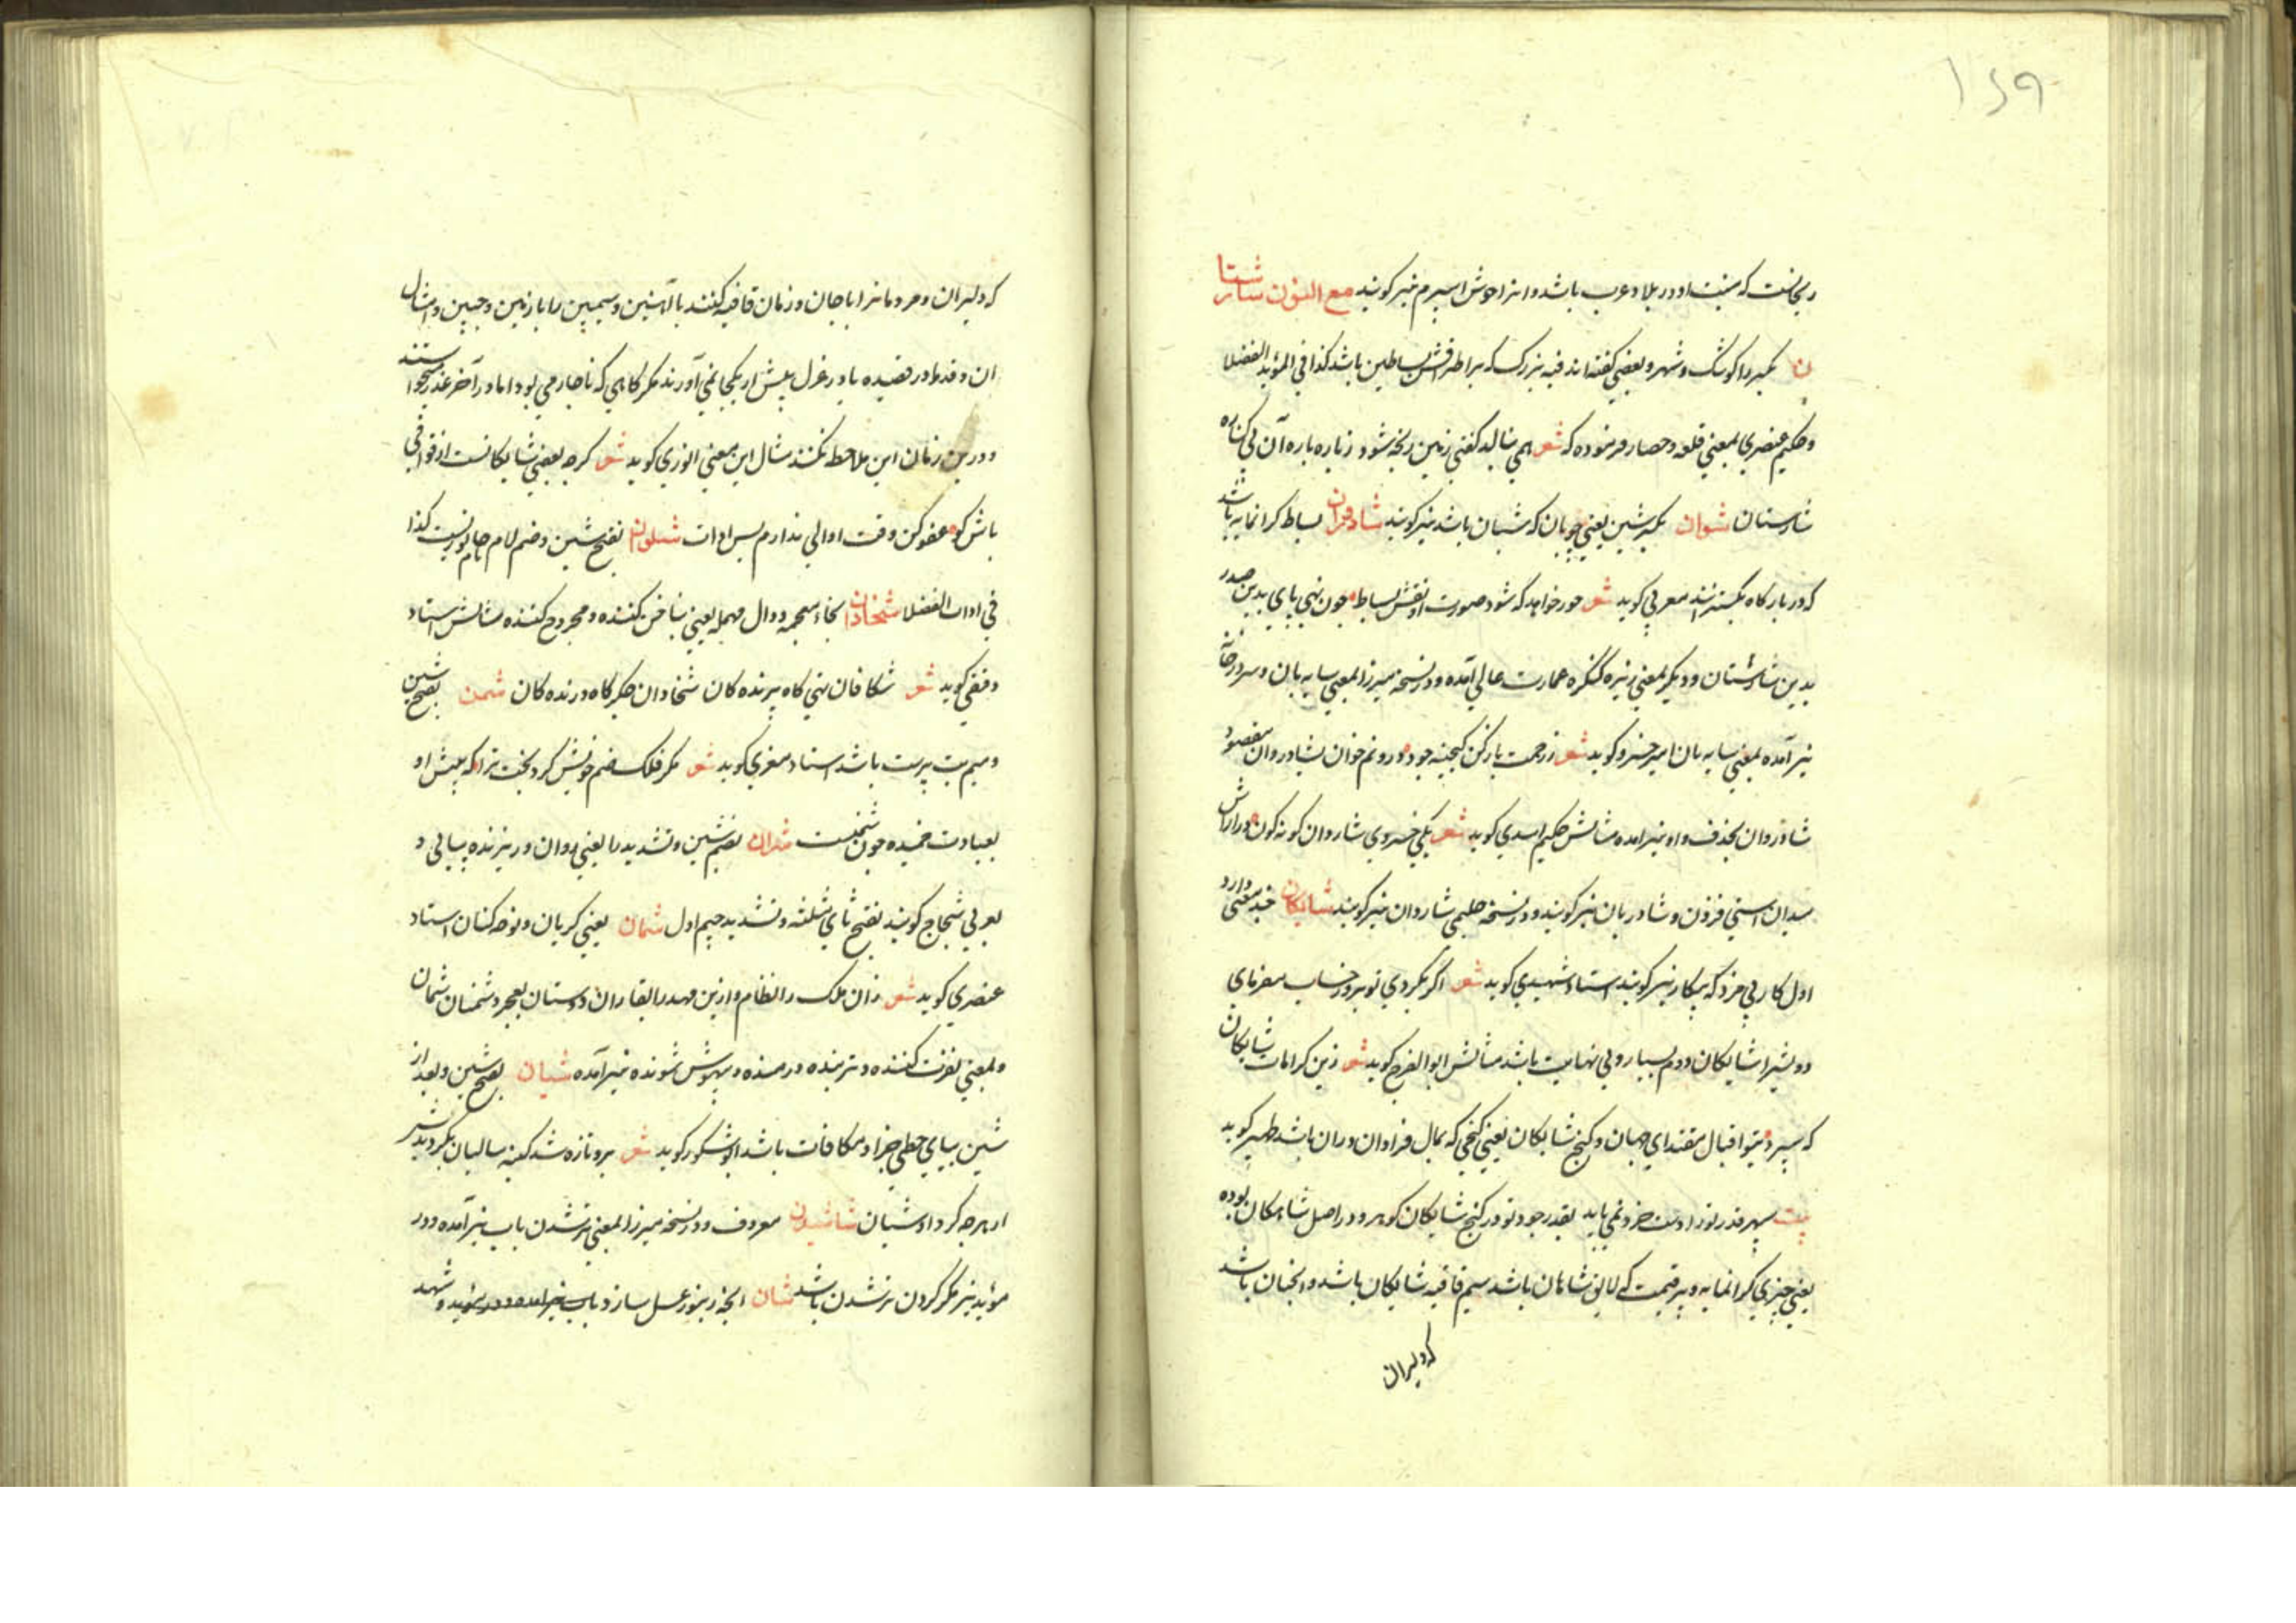 ۱۶۹
ریحانست که منبت او در بلاد عرب باشد و انرا خوش اسپرم نیز کویند مع النون شارستا
ن بکسر را کوشک و شهر و بعضی کفته اند قبه بزرک که بر اطرافش بساطین باشد کذا فی المؤید الفضلا
و حکیم عنصری بمعنی قلعه و حصار فرموده که شعر همی بنالد کفتی زمین ریخه شود ز باره باره آن بی کناره
شارستان شوان بکسر شین یعنی چوپان که شبان باشد نیز کویند شادوران بساط کرانمایه باشد
که در بارکاه بکسترانند معزی کوید شعر حور خواهد که شود صورت او نقش بساط چون نهی پای بدین صدر
بدین شارستان و دیکر بمعنی زیره کنکره عمارت عالی آمده و در نسخه میرزا بمعنی سایه بان و سردر خانه
نیز آمده بمعنی سایه بان امیر خسرو کوید شعر ز رحمت باز کن کنجینه جود درونم خوان بشادروان مقصود
شادروان بحذف واو نیز امده مثالش حکیم اسدی کوید شعر یکی خسروی شاروان کونه کون درازاش
میدان اسپی فزون و شادربان نیز کویند و در نسخه حلیمی شاروان نیز کویند شایکان چند معنی دارد
اول کار بی مزد که بیکار نیز کویند استاد شهیدی کوید شعر اکر بکردی تو بروز حساب مفرمای
دو بشیرا شایکان دوم بسیار و بی نهایت باشد مثالش ابوالفرج کوید شعر زین کرامات شایکان
که سپرد بتو اقبال مقتدای جهان و کنج شایکان یعنی کنجی که بمال فراوان دران باشد ظهیر کوید
بیت سپهر قدر تو را دست خرد نمی یابد بقدر جود تو در کنج شایکان کوهر و در اصل شاهکان بوده
یعنی چیزی کرانمایه و پر قیمت که لایق شاهان باشد سیم قافیه شایکان باشد و انچنان باشد
که دلیران
که دلیران و مردمانرا با جان و زمان قافیه کنند با آهنین و سیمین را با زمین و جبین و امثال
ان و قدما در قصیده یا در غزل بیش از یکجا نمی آورند مکر کاهی که ناچار می بود اما در آخر عذر میخواستند
و درین زمان این ملاحظه نکنند مثال این معنی انوری کوید شعر کرچه بعضی شایکانست از قوافی
باش کو عفو کن وقت اوالی ندارم بس ادات شلون بفتح شین و ضم لام جانوریست کذا
فی ادات الفضلا شخادان بخاء معجمه و دال مهمله یعنی بناخن کننده و مجروح کننده مثالش استاد
دقیقی کوید شعر شکافان تهی کاه پرنده کان شخادان جکر کاه درنده کان شمن بفتح شین
و میم بت پرست باشد استاد معزی کوید شعر مکر فلک صنم خویش کرد بخت ترا که پیش او
بعبادت خمیده چون شمنست شران بضم شین و تشدید را یعنی روان و ریزنده پیاپی و
بعربی ثجاج کویند بفتح ثای مثلثه و تشدید جیم اول شمان یعنی کریان و نوحه کنان استاد
عنصری کوید شعر زان ملک را نظام وازین عهد را بقا زان دوستان بعجز و دشمنان شمان
و بمعنی نفرت کننده و ترسنده و رمنده و بیهوش شونده نیز آمده شیان بفتح شین و بعد از
شین بیای حطی جزا و مکافات باشد ابوشکور کوید شعر برو تازه شد کینه سالیان بکردید شر
از هرچه کرد او شیان شاشیدن معروف و در نسخه میرزا بمعنی تر شدن باب نیز آمده و در
مؤید نیز مکر کردن تر شدن باشد شان انچه زنبور عسل سازد باب نیز امده و در مؤید و شهد